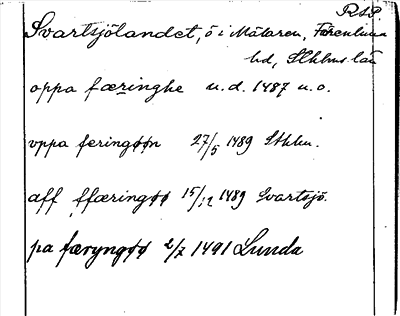 RSP
Svartsjölandet, ö i Mälaren, Färentuna
hd, Sthlms län
oppa færinghe u.d. 1487 u.o.
vppa feringøøn 27/5 1489 Sthlm.
aff ffæringøø 15/12 1489 Svartsjö.
pa færyngøø 2/7 1491 Lunda